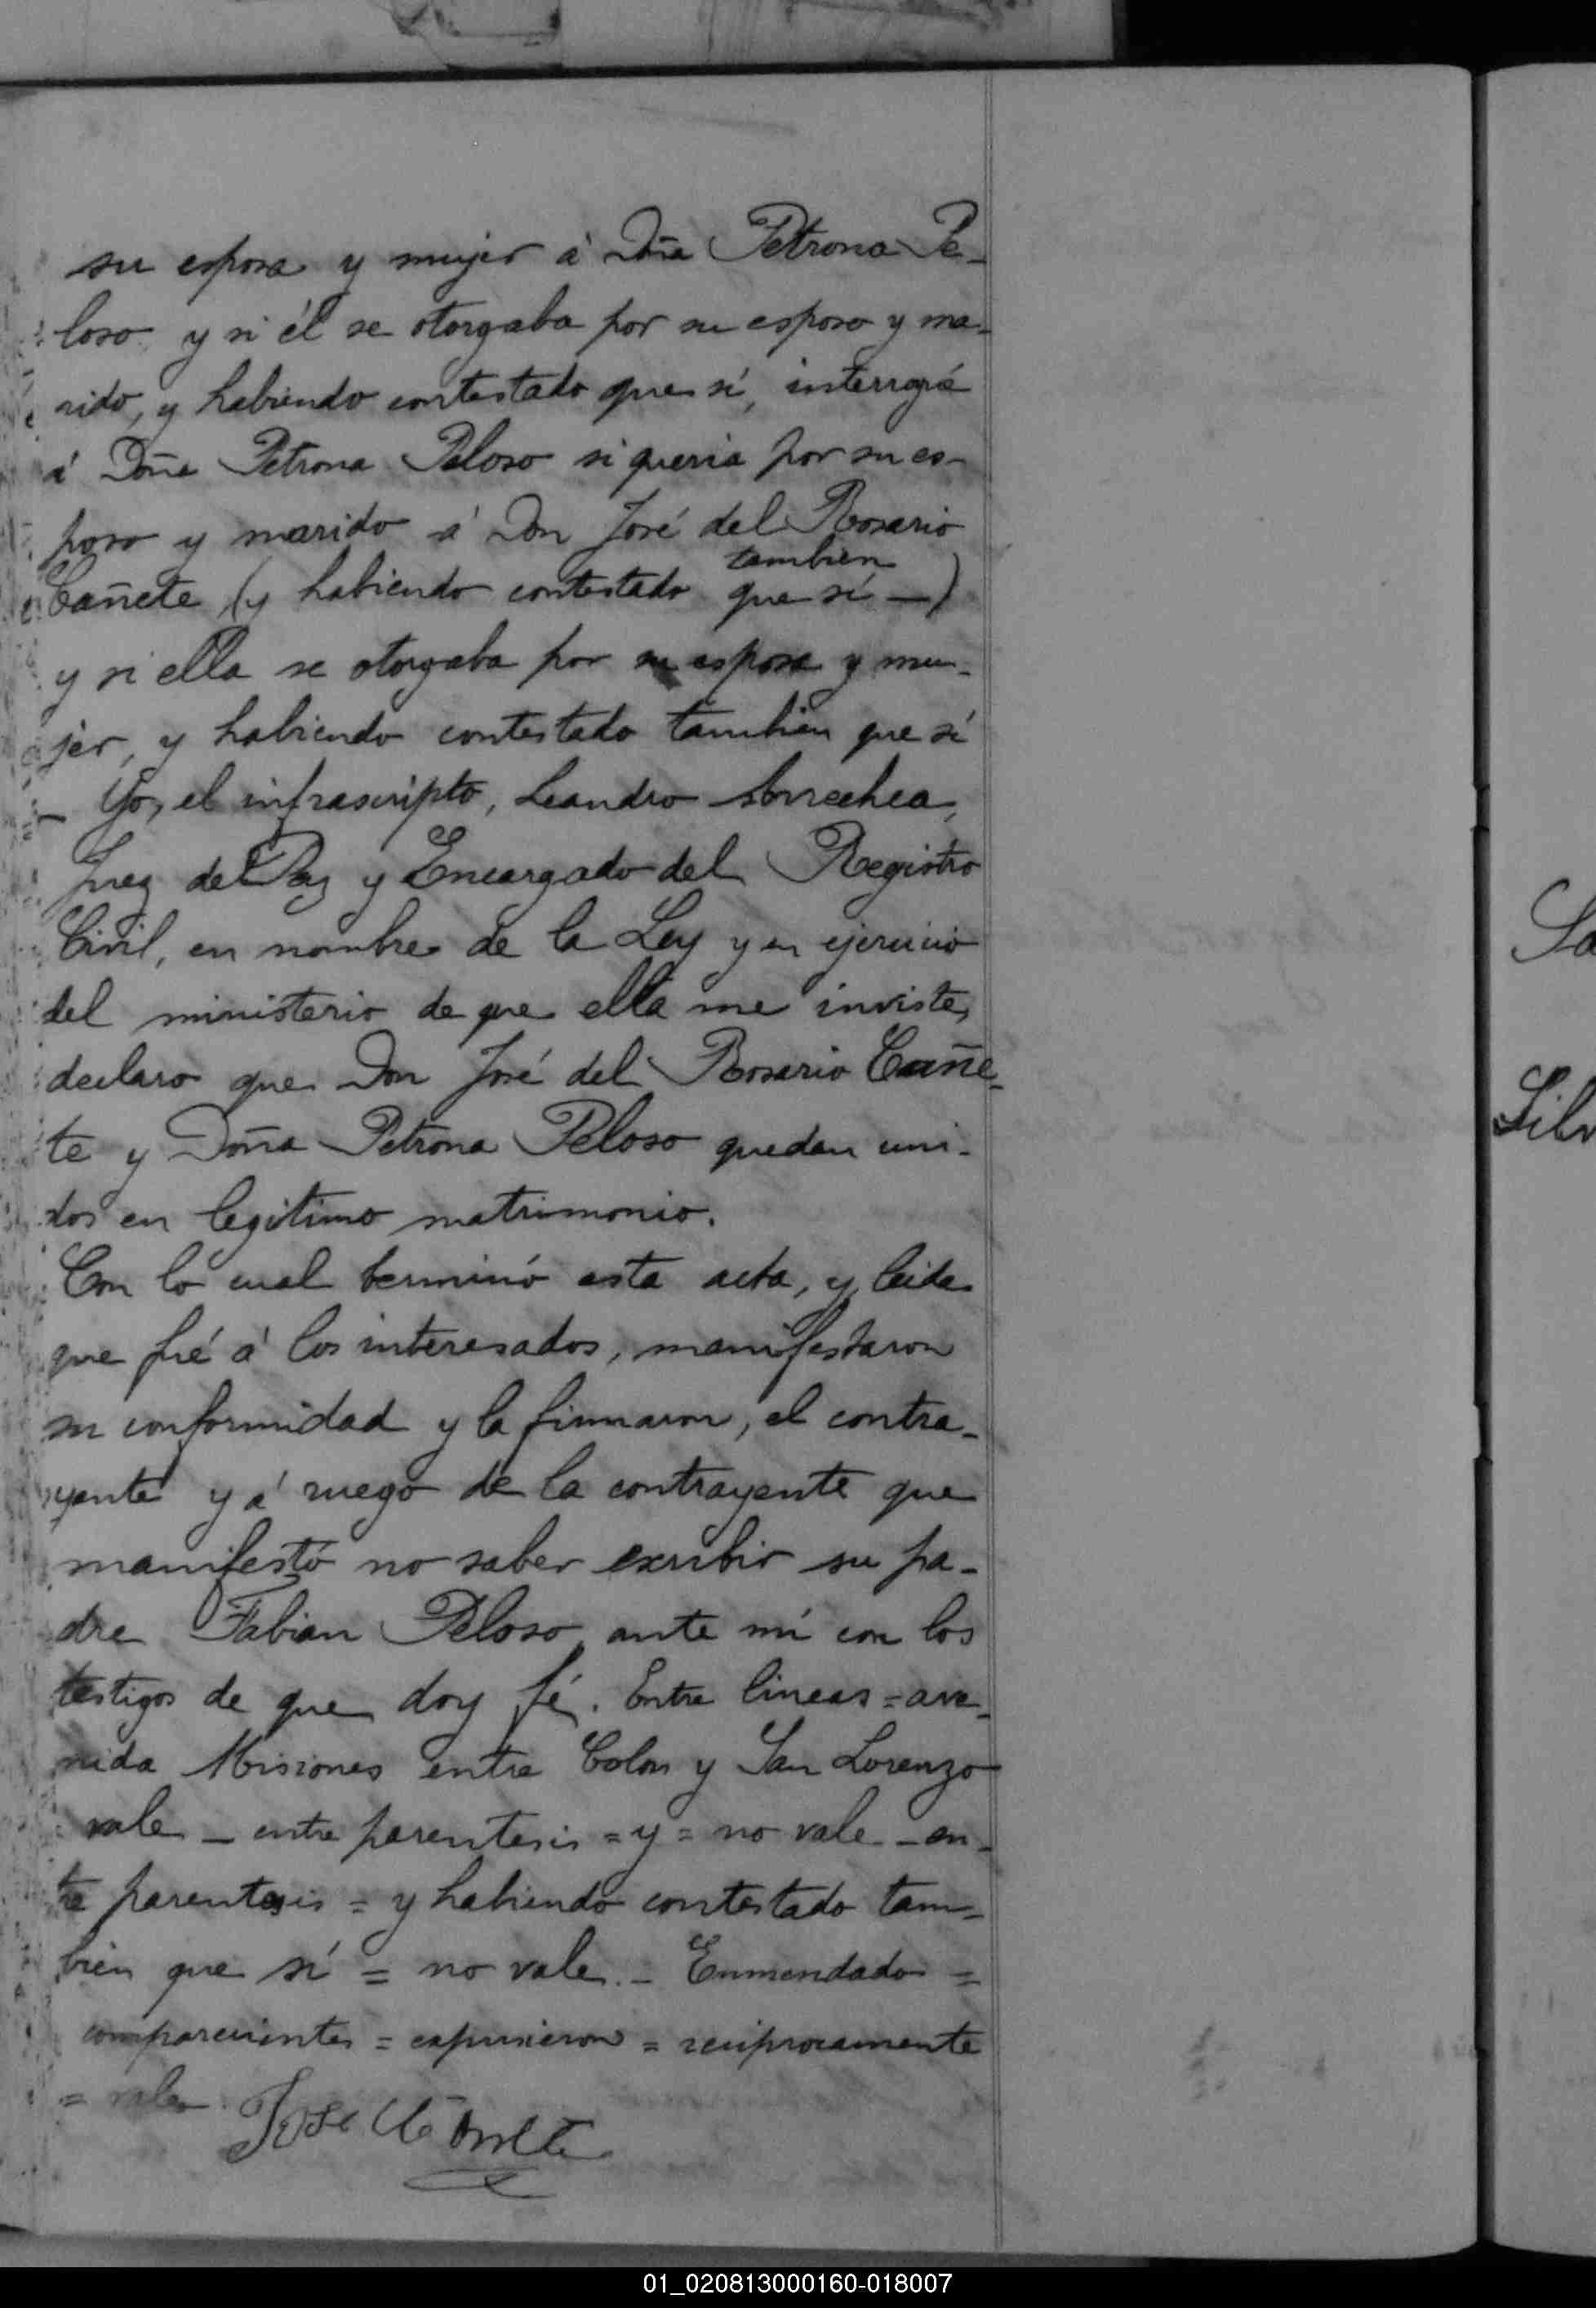 su esposa y mujer á Doña Petrona Pe-
loso y si él se otorgaba por su esposo y ma-
rido, y habiendo contestado que sí, interrogué
á Doña Petrona Peloso si queria por su es-
poso y marido á Don José del Rosario
también
Cañete (y habiendo contestado que sí —)
y si ella se otorgaba por su esposa y mu-
jer, y habiendo contestado también que sí
— Yo, el infrascripto, Leandro Arrechea,
Juez de Paz y Encargado del Registro
Civil, en nombre de la Ley y en ejercicio
del ministerio de que ella me inviste,
declaro que Don José del Rosario Cañe-
te y Doña Petrona Peloso quedan uni-
dos en legitimo matrimonio.
Con lo cual terminó esta acta, y leida
que fué á los interesados, manifestaron
su conformidad y la firmaron, el contra-
yente y á ruego de la contrayente que
manifestó no saber escribir su pa-
dre Fabian Peloso ante mí con los
testigos de que doy fé. Entre lineas = ave-
nida Misiones entre Colon y San Lorenzo
vale — entre parentesis = y = no vale — en-
tre parentesis = y habiendo contestado tam-
bien que sí = no vale. — Enmendado =
comparecientes = expusieron = reciprocamente
= vale.
José Cañete
Sa
Silv
01_020813000160-018007